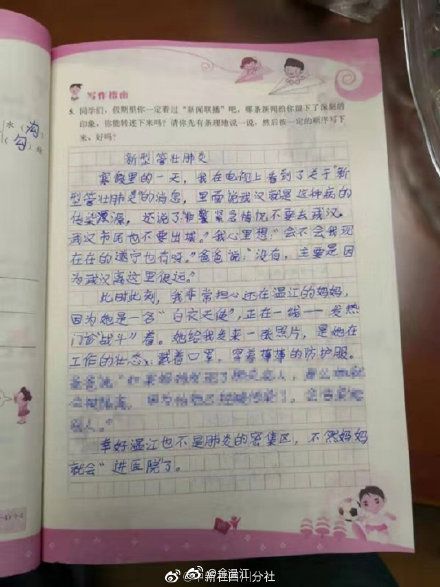 水(沟)
(勾)
写作指南
5. 同学们，假期里你一定看过“新闻联播”吧，哪条新闻给你留下了深刻的
印象，你能转述下来吗？请你先有条理地说一说，然后按一定的顺序写下
来，好吗？
新型管壮肺炎
寒假里的一天，我在电视上看到了关于“新
型管壮肺炎”的消息，里面说武汉就是这种病的
传染源，还说了非紧急情况不要去武汉，
武汉市民也不要出城。”我心里想：“会不会我现
在在的遂宁也有呀。”爸爸说：“没有，主要是因
为武汉离这里很远。”
此时此刻，我非常担心还在温江的妈妈，
因为她是一名“白衣天使”，正在一线——发热
门诊“战斗”着。她给我发来一张照片，是她在
工作的状态，戴着口罩，穿着薄薄的防护服。
幸好温江也不是肺炎的密集区，不然妈妈
就会“进医院”了。
@金温江
@中新社四川分社